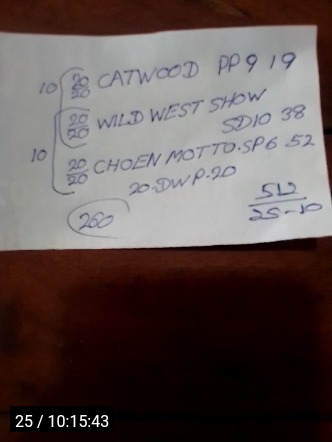 10 20/20 CATWOOD PP9 19
20/20 WILD WEST SHOW
SD10 38
10 20/20 CHOEN MOTTO.SP6.52
20.DWP.20
260
512
25-10
25 / 10:15:43